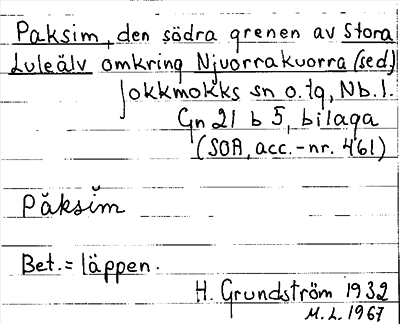 Paksim, den södra grenen av Stora
Luleälv omkring Njuorrakuorra (sed)
Jokkmokks sn o. tg, Nb. l.
Gn 21 b 5, bilaga
(SOA, acc.-nr. 461)
Păksĭm
Bet. = läppen.
H. Grundström 1932
M. L. 1967